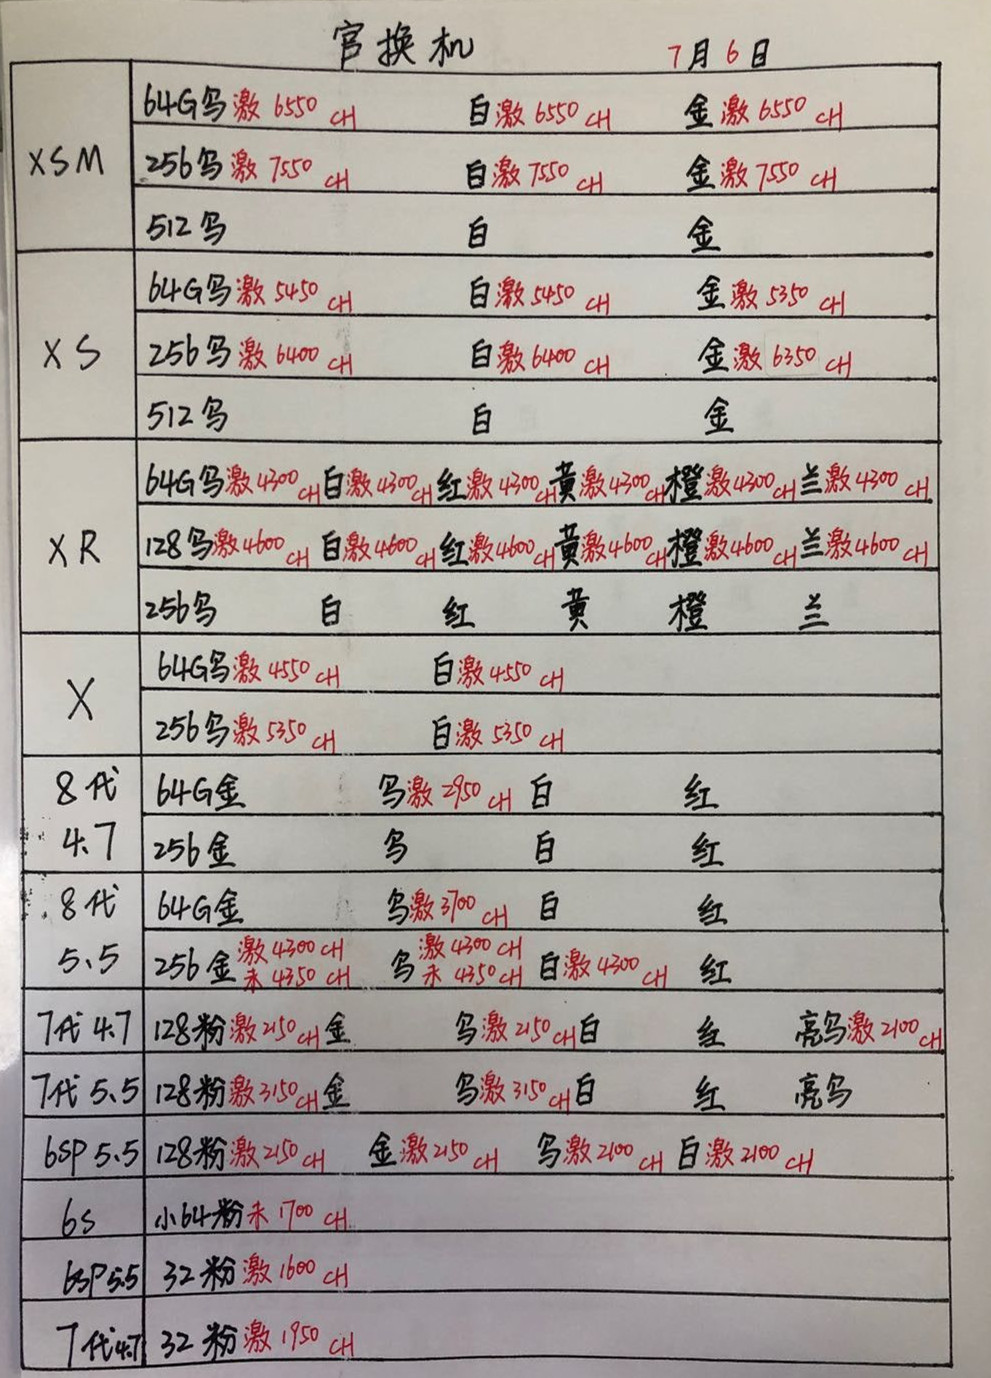 官换机 7月6日
XSM
64G乌激6550 CH 白激6550 CH 金激6550 CH
256乌激7550 CH 白激7550 CH 金激7550 CH
512乌 白 金
XS
64G乌激5450 CH 白激5450 CH 金激5350 CH
256乌激6400 CH 白激6400 CH 金激6350 CH
512乌 白 金
XR
64G乌激4300 CH 白激4300 CH 红激4300 CH 黄激4300 CH 橙激4300 CH 兰激4300 CH
128乌激4600 CH 白激4600 CH 红激4600 CH 黄激4600 CH 橙激4600 CH 兰激4600 CH
256乌 白 红 黄 橙 兰
X
64G乌激4550 CH 白激4550 CH
256乌激5350 CH 白激5350 CH
8代
4.7
64G金 乌激2950 CH 白 红
256金 乌 白 红
8代
5.5
64G金 乌激3700 CH 白 红
256金 激4300 CH 未4350 CH 乌 激4300 CH 未4350 CH 白激4300 CH 红
7代4.7 128粉激2150 CH 金 乌激2150 CH 白 红 亮乌激2100 CH
7代5.5 128粉激3150 CH 金 乌激3150 CH 白 红 亮乌
6SP5.5 128粉激2150 CH 金激2150 CH 乌激2100 CH 白激2100 CH
6S 小64粉未1700 CH
6SP5.5 32粉激1600 CH
7代4.7 32粉激1950 CH